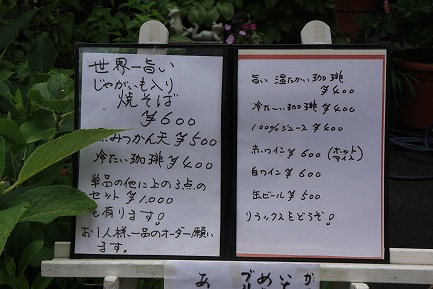 世界一旨い
じゃがいも入り
焼そば
¥600
みつかん天 ¥500
冷たい珈琲 ¥400
単品の他に上の3点の
セット ¥1,000
も有ります!
お1人様、一品のオーダー願い
ます。
旨い 温たかい 珈琲
¥400
冷たーい 珈琲 ¥400
100%ジュース ¥400
赤ワイン ¥600 (ホット アイス)
白ワイン ¥600
缶ビール ¥500
リラックスをどうぞ!